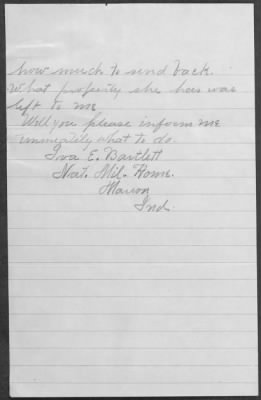 how much to send back.
What property she has was
left to me
Will you please inform me
immediately what to do.
Iva E. Bartlett
Nat. Mil. Home.
Marion
Ind.